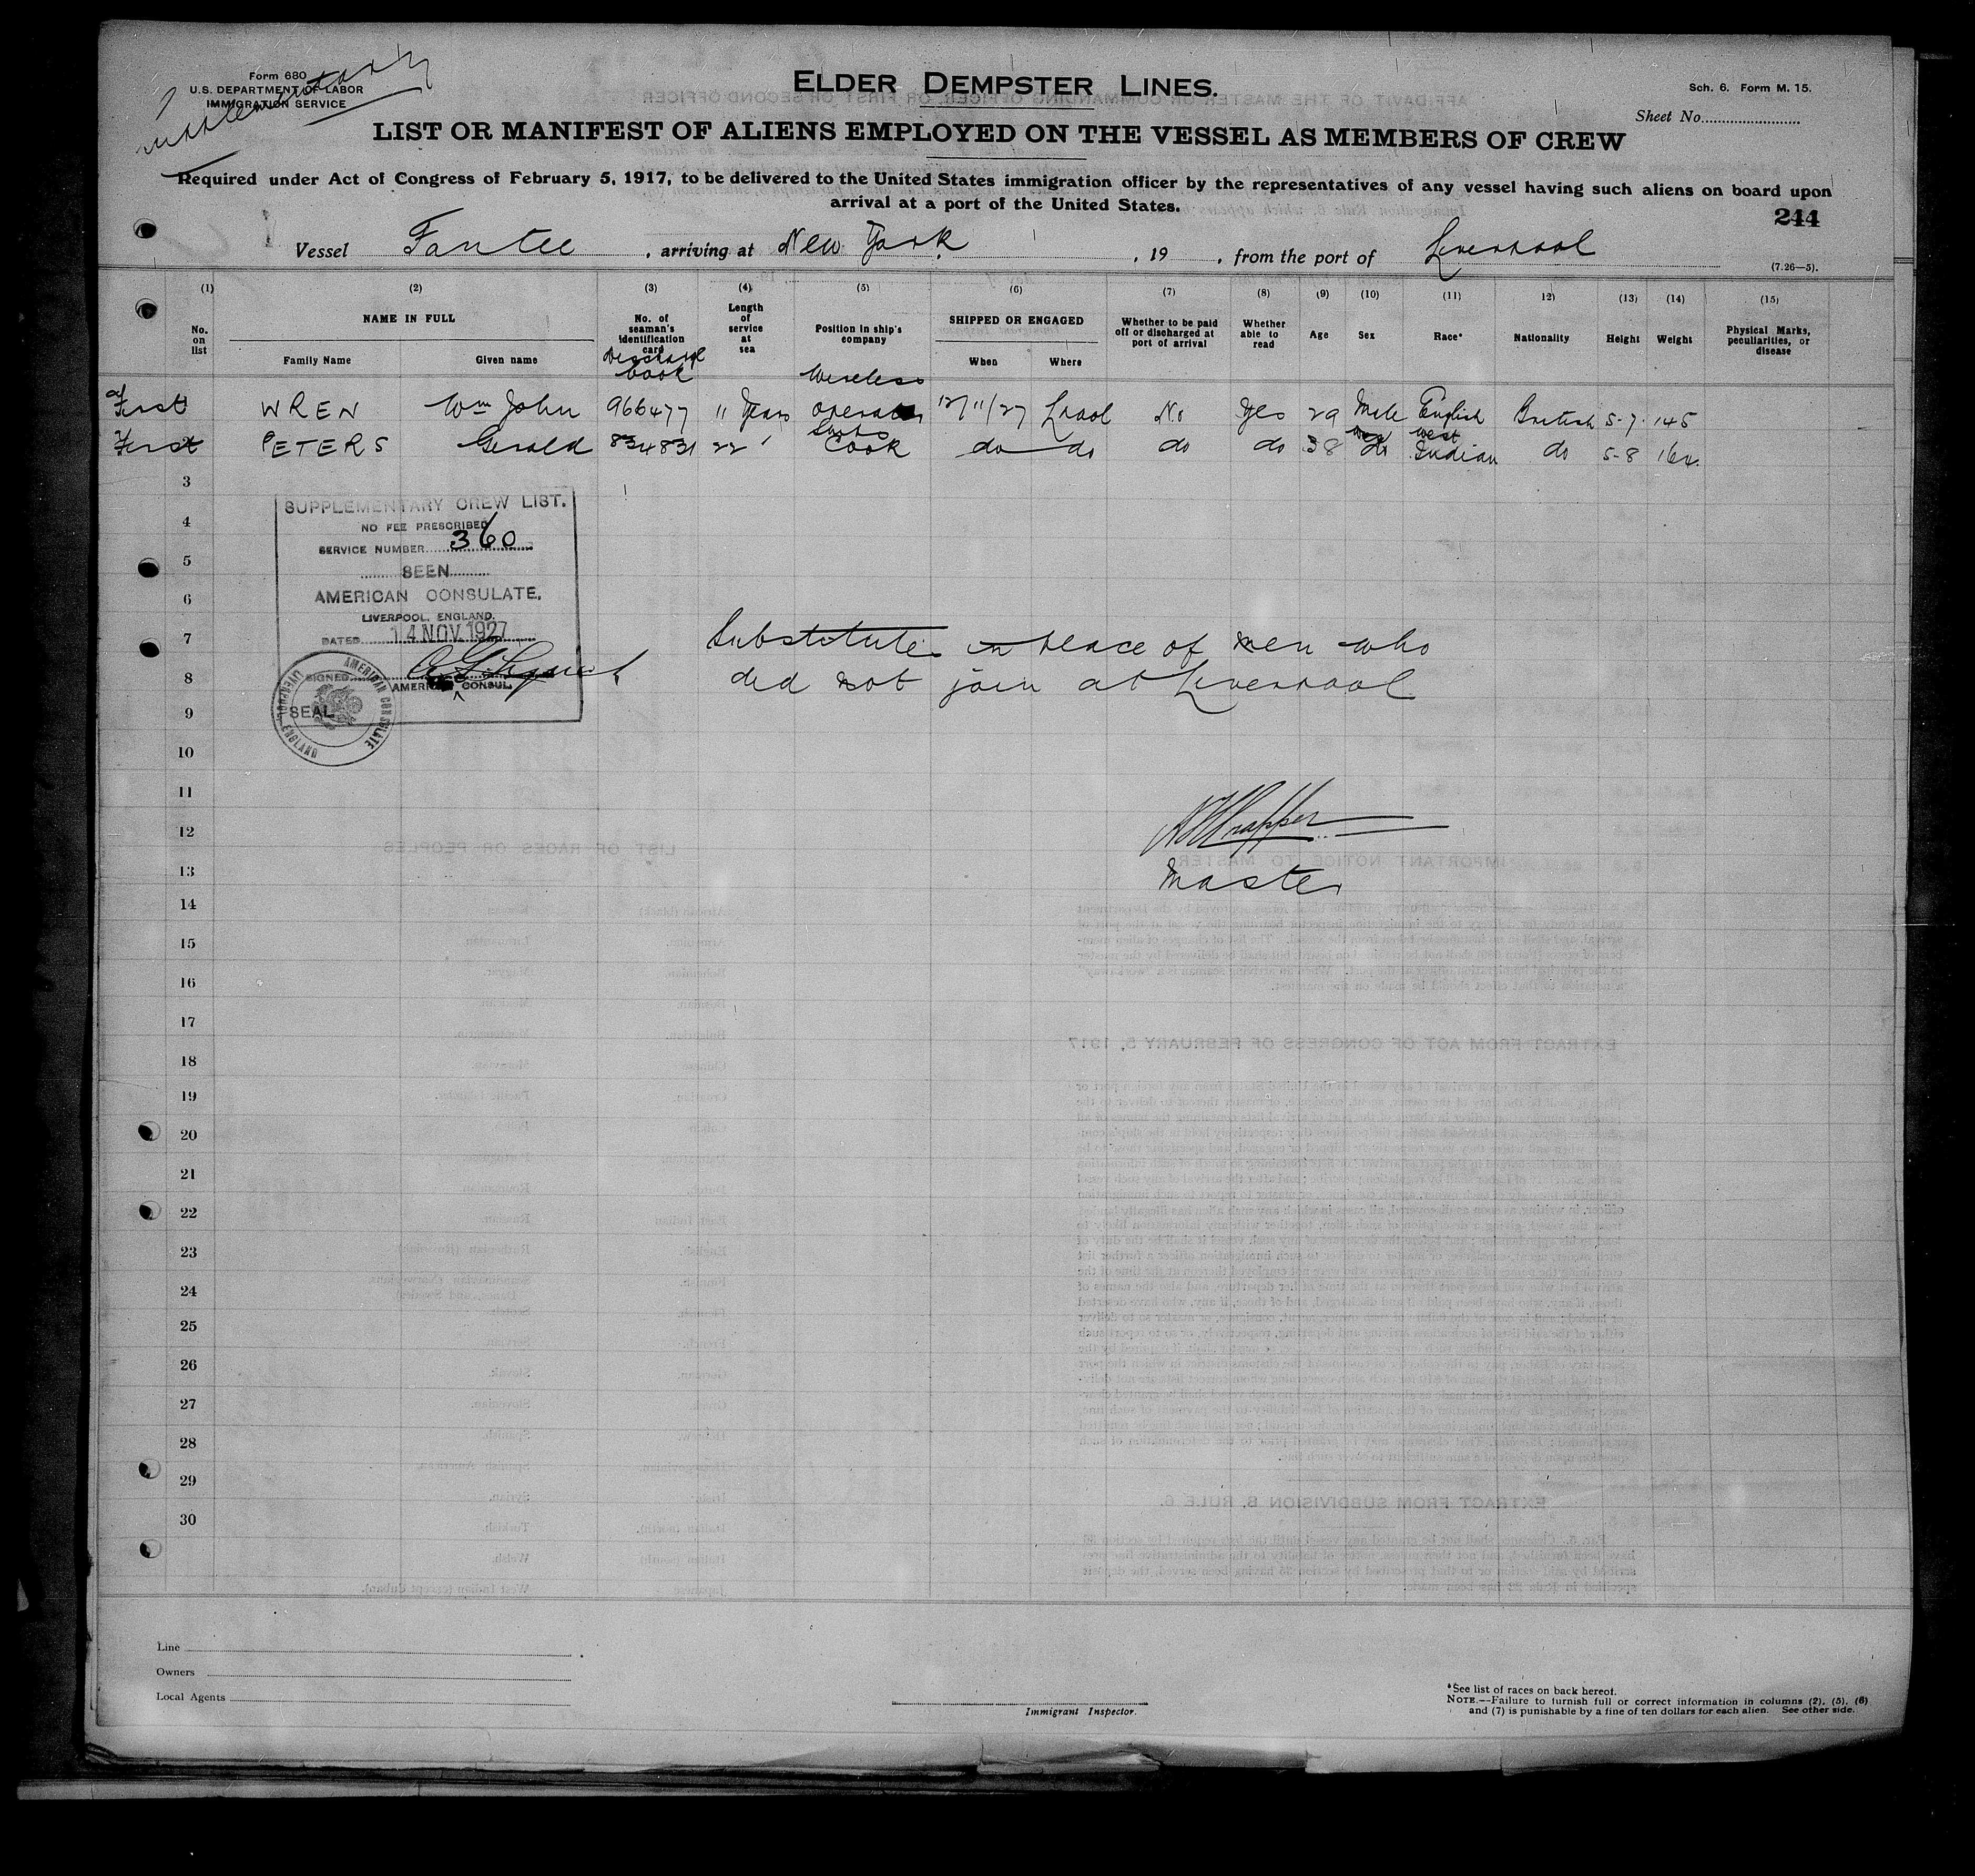 Form 680
U.S. DEPARTMENT OF LABOR
IMMIGRATION SERVICE
Supplementary
ELDER DEMPSTER LINES.
Sch. 6. Form M. 15.
Sheet No.
LIST OR MANIFEST OF ALIENS EMPLOYED ON THE VESSEL AS MEMBERS OF CREW
Required under Act of Congress of February 5, 1917, to be delivered to the United States immigration officer by the representatives of any vessel having such aliens on board upon
arrival at a port of the United States.
244
Vessel Fantee, arriving at New York, 19 , from the port of Liverpool
(7.26—5).
(1) (2) (3) (4) (5) (6) (7) (8) (9) (10) (11) 12) (13) (14) (15)
No. on list
NAME IN FULL
Family Name
Given name
No. of seaman's identification card
Discharge book
Length of service at sea
Position in ship's company
SHIPPED OR ENGAGED
When
Where
Whether to be paid off or discharged at port of arrival
Whether able to read
Age
Sex
Race*
Nationality
Height
Weight
Physical Marks, peculiarities, or disease
First WREN Wm John 966477 11 Years Wireless operator 12/11/27 Lpool No Yes 29 Male English British 5-7 145
First PETERS Gerald 834831 22 ' Cook do do do do 38 do West Indian do 5-8 164
3
4
5
6
7
8
9
10
11
12
13
14
15
16
17
18
19
20
21
22
23
24
25
26
27
28
29
30
SUPPLEMENTARY CREW LIST.
NO FEE PRESCRIBED
SERVICE NUMBER 360
SEEN
AMERICAN CONSULATE,
LIVERPOOL, ENGLAND.
DATED 14 NOV 1927
SIGNED
AMERICAN CONSUL.
SEAL
AMERICAN CONSULATE
LIVERPOOL, ENGLAND
Substitutes in place of men who
did not join at Liverpool
Master
Line
Owners
Local Agents
Immigrant Inspector.
*See list of races on back hereof.
NOTE.—Failure to furnish full or correct information in columns (2), (5), (6)
and (7) is punishable by a fine of ten dollars for each alien. See other side.